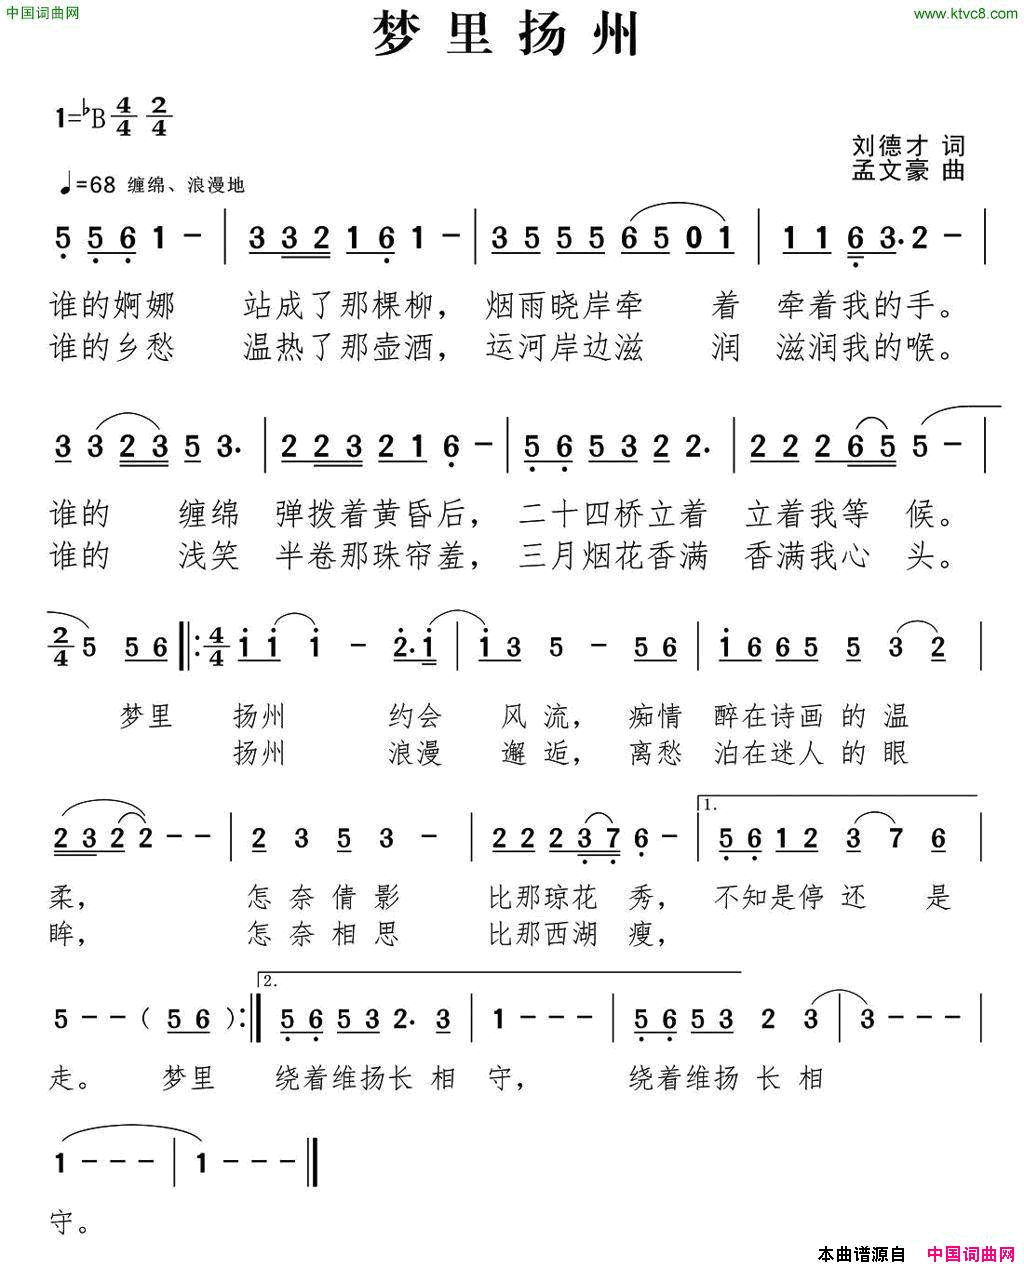 中国词曲网
www.ktvc8.com
梦里扬州
1=♭B 4/4 2/4
刘德才 词
♩=68 缠绵、浪漫地
孟文豪 曲
5 5 6 1 － | 3 3 2 1 6 1 － | 3 5 5 5 6 5 0 1 | 1 1 6 3. 2 － |
谁的婀娜 站成了那棵柳， 烟雨晓岸牵 着 牵着我的手。
谁的乡愁 温热了那壶酒， 运河岸边滋 润 滋润我的喉。
3 3 2 3 5 3. | 2 2 3 2 1 6 － | 5 6 5 3 2 2. | 2 2 2 6 5 5 － |
谁的 缠绵 弹拨着黄昏后， 二十四桥立着 立着我等 候。
谁的 浅笑 半卷那珠帘羞， 三月烟花香满 香满我心 头。
2/4 5 5 6 ‖: 4/4 1 1 1 － 2. 1 | 1 3 5 － 5 6 | 1 6 6 5 5 3 2 |
梦里 扬州 约会 风 流， 痴情 醉在诗画 的 温
扬州 浪漫 邂 逅， 离愁 泊在迷人 的 眼
2 3 2 2 － － | 2 3 5 3 － | 2 2 2 3 7 6 － | 1. 5 6 1 2 3 7 6 |
柔， 怎 奈 倩 影 比那琼花 秀， 不知是停 还 是
眸， 怎 奈 相 思 比那西湖 瘦，
5 － － （ 5 6 ） :‖ 2. 5 6 5 3 2. 3 | 1 － － － | 5 6 5 3 2 3 | 3 － － － |
走。 梦里 绕着维扬长 相 守， 绕着维扬 长 相
1 － － － | 1 － － － ‖
守。
本曲谱源自 中国词曲网